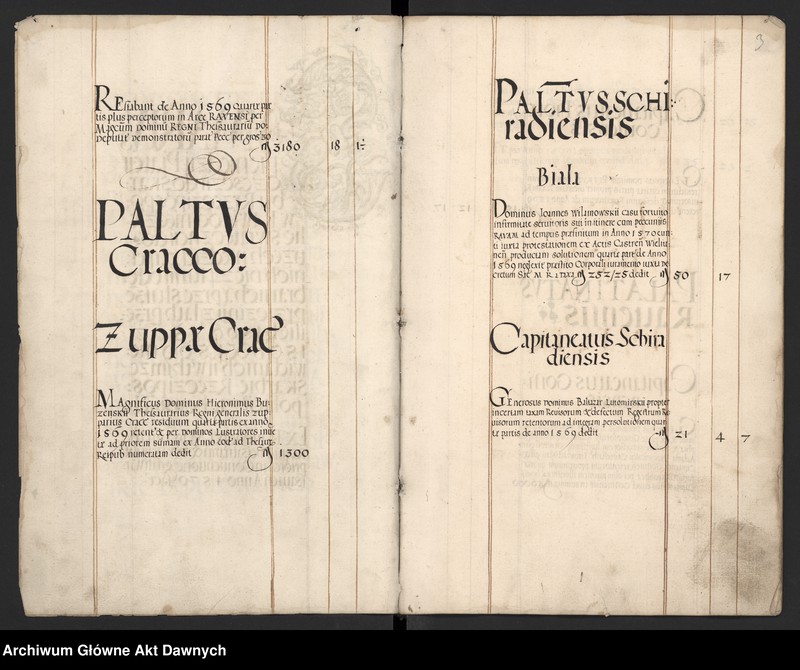 REstabant de Anno 1569 quartæ par
tis plus perceptorum in Arce RAVENSI per
Magcum dominū REGNI Thesaurariū
3180 18 1½
PALTVS
Cracco:
Zuppæ Cracc
MAgnificus Dominus Hieronimus Bu
zenskii Thesaurarius Regni generalis zup
parius Cracc residuum quartæ partis ex anno
1569 retent & per Dominos Lustratores inue
tæ ad priorem sumam ex Anno eod ad Thesau
numeratam dedit 1300
3
PALTVS SCHI
radiensis
Biala
Dominus Joannes Wilamowskii casu fortuito
infirmitate seruitoris sui in itinere cum pecuniis
RAVAM ad tempus præfinitum in Anno 1570
iuxta protestationem ex Actis Castren Wielu
nen productam solutionem quartæ partis de Anno
1569 neglexit præstito Corporali iuramento iuxta de
cretum Sac M R dedit 50 17
Capitaneatus Schira
diensis
GEnerosus Dominus Baltazar Lutomirskii propter
incertam taxam Reuisorum & defectum Regestrum Re
uisorum retentorum ad integram persolutionem quar
tæ partis de anno 1569 dedit 21 4 7
Archiwum Główne Akt Dawnych